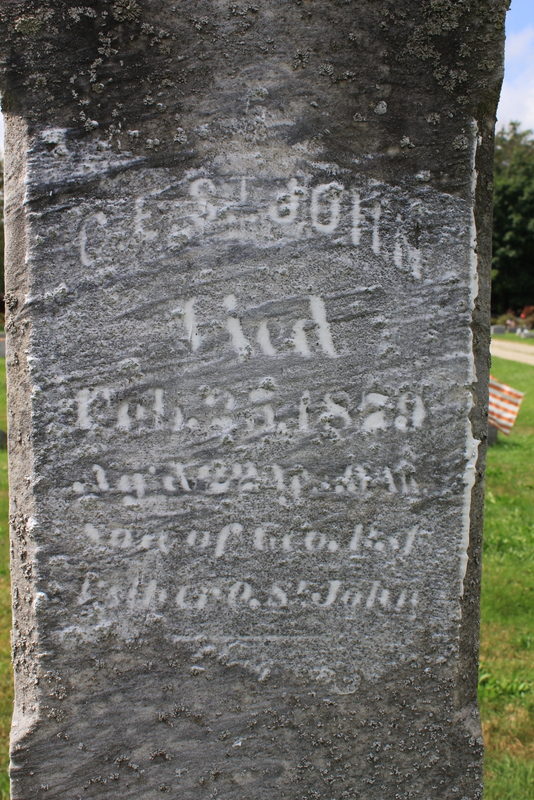 C. E. ST. JOHN
Died
Feb. 25, 1879
Ag'd 22 y's.
Son of Geo. E. &
Esther O. St. John